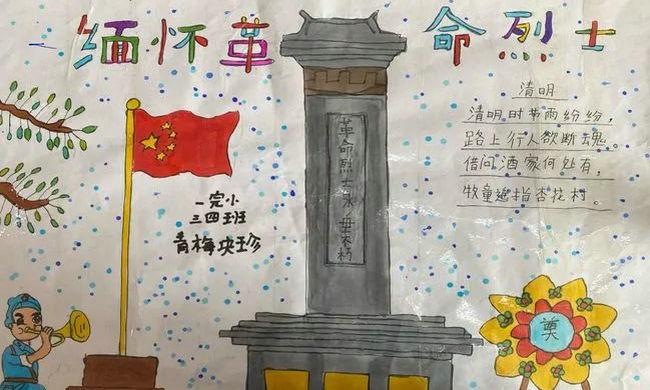 缅怀革命烈士
清明
清明时节雨纷纷,
路上行人欲断魂。
借问酒家何处有,
牧童遥指杏花村。
革命烈士永垂不朽
一完小
三四班
青梅央珍
奠